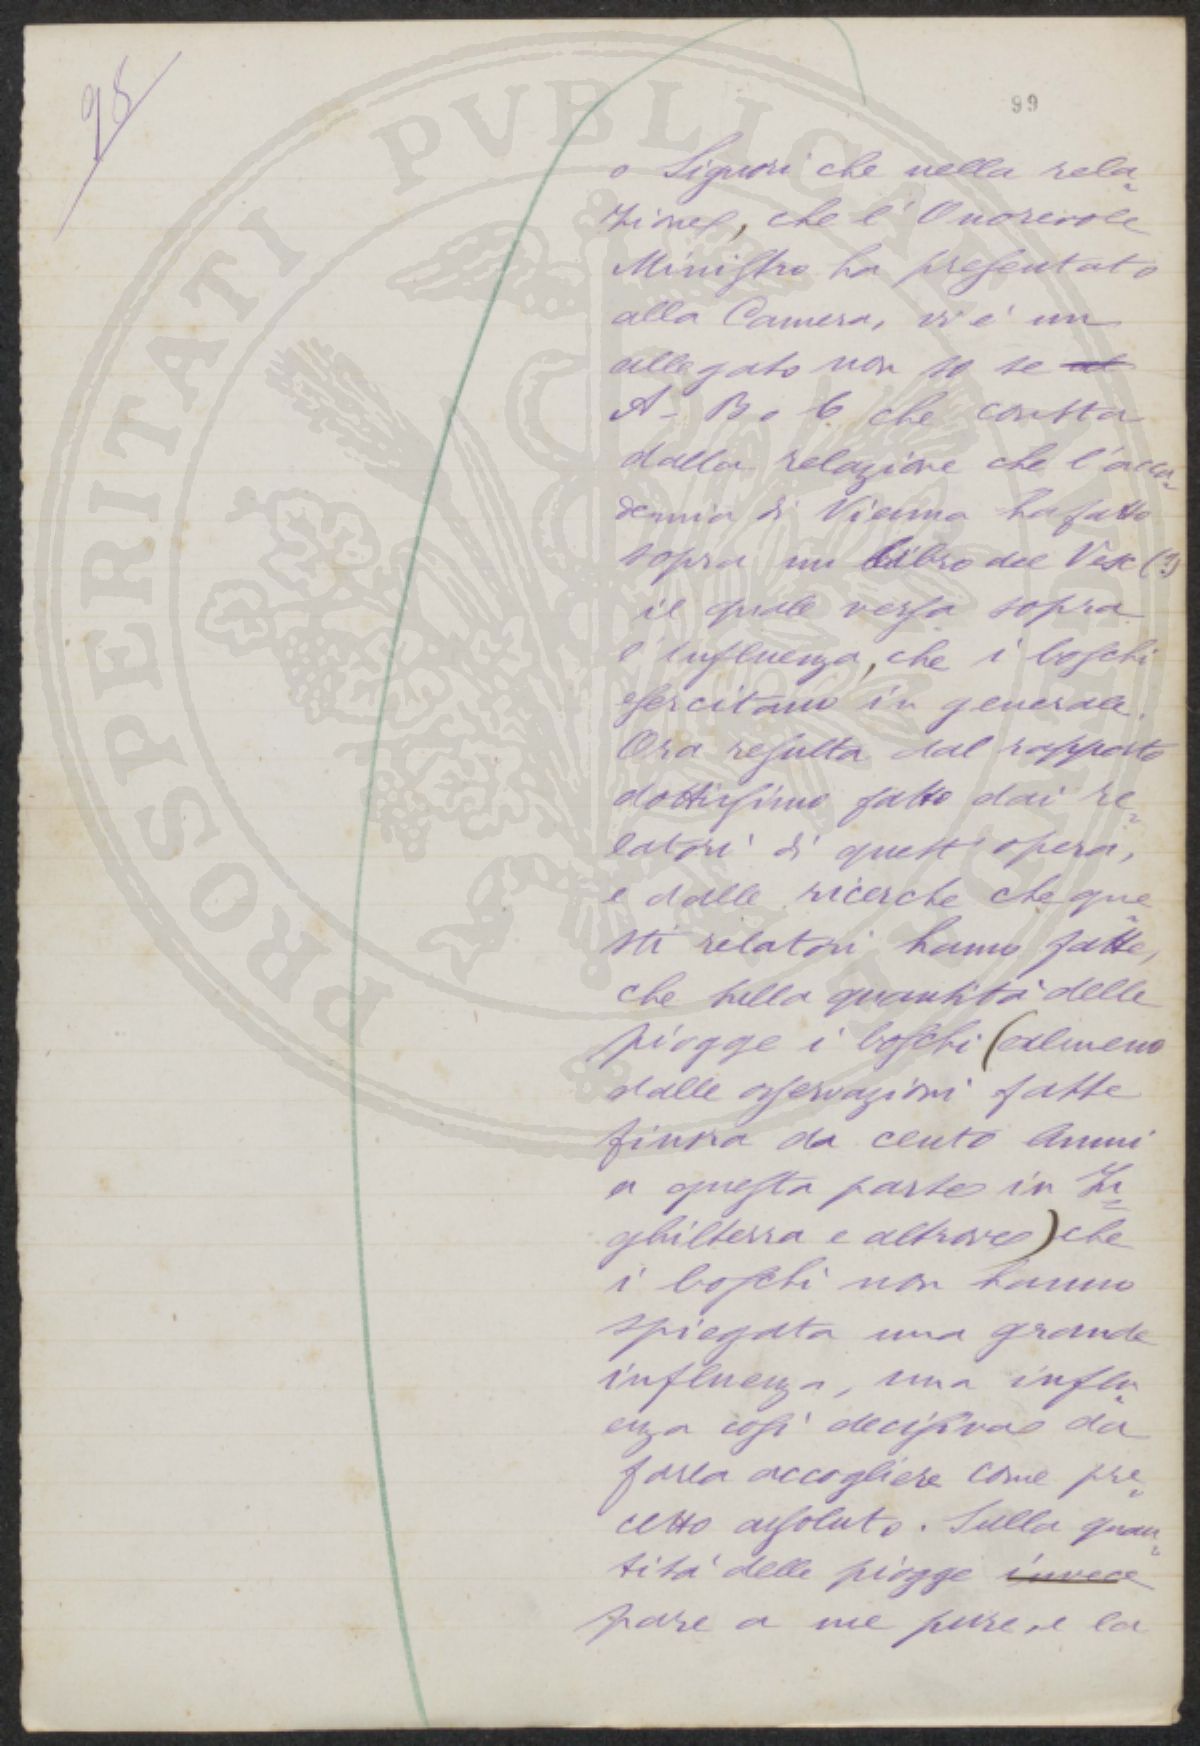 98
99
o Signori che nella rela=
zione, che l'Onorevole
Ministro ha presentato
alla Camera, vi è un
allegato non so se al
A- B o C che consta
dalla relazione che l'acca=
demia di Vienna ha fatto
sopra un libro del Vex (?)
il quale versa sopra
l'influenza, che i boschi
esercitano in generale.
Ora resulta dal rapporto
dottissimo fatto dai re=
latori di quest'opera,
e dalle ricerche che que=
sti relatori hanno fatte,
che sulla quantità delle
piogge i boschi (almeno
dalle osservazioni fatte
finora da cento anni
a questa parte in In=
ghilterra e altrove) che
i boschi non hanno
spiegata una grande
influenza, una influ=
enza così decisiva da
farla accogliere come pre=
cetto assoluto. Sulla quan=
tità delle piogge invece
pare a me pure, e la
PROSPERITATI PVBLICAE